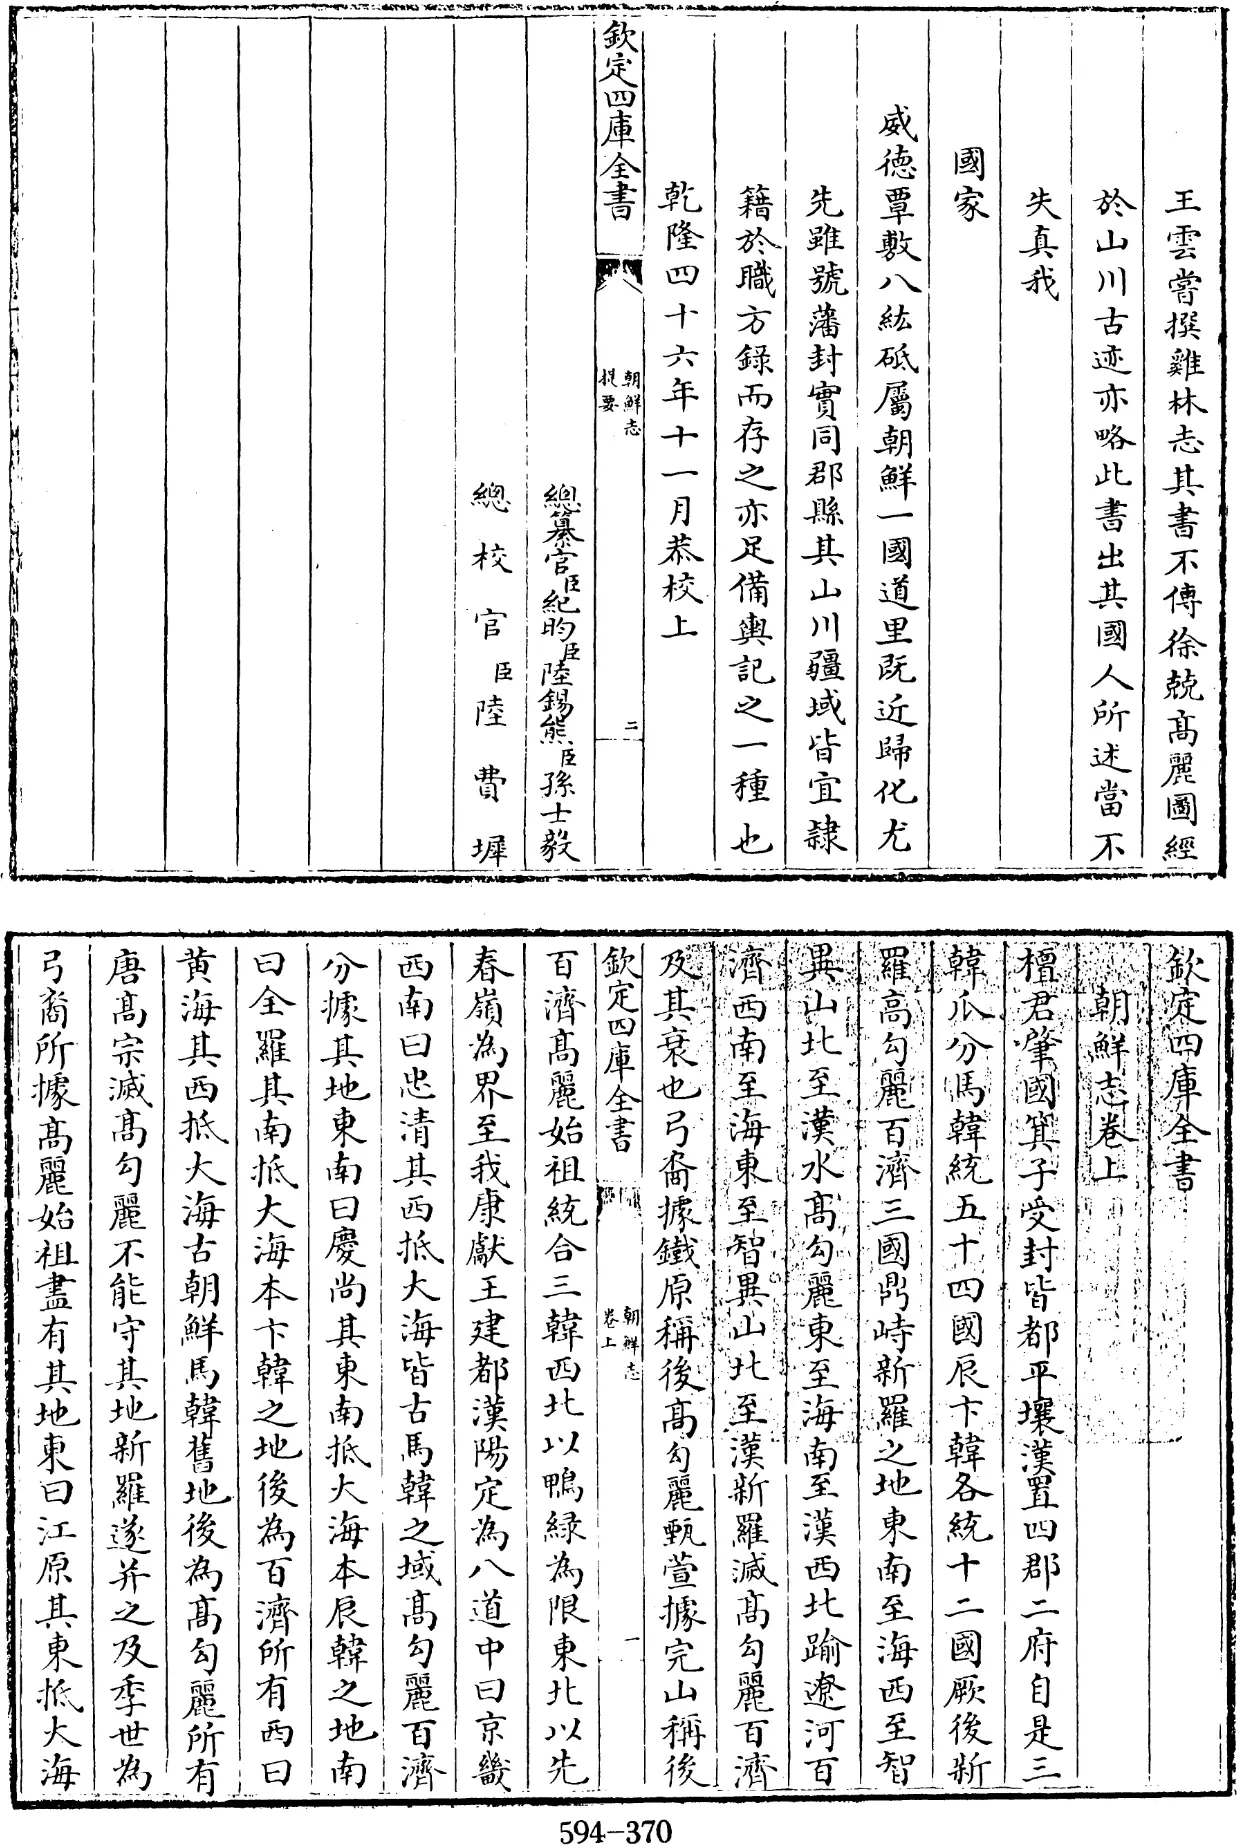 王雲嘗撰雞林志其書不傳徐兢髙麗圖經
於山川古迹亦略此書出其國人所述當不
失真我
國家
威德覃敷八紘砥屬朝鮮一國道里既近歸化尤
先雖號藩封實同郡縣其山川疆域皆宜隸
籍於職方錄而存之亦足備輿記之一種也
乾隆四十六年十一月恭校上
欽定四庫全書
朝鮮志
提要
二
總纂官臣紀昀臣陸錫熊臣孫士毅
總校官臣陸費墀
欽定四庫全書
朝鮮志卷上
檀君肇國箕子受封皆都平壤漢置四郡二府自是三
韓瓜分馬韓統五十四國辰卞韓各統十二國厥後新
羅高勾麗百濟三國鼎峙新羅之地東南至海西至智
異山北至漢水髙勾麗東至海南至漢西北踰遼河百
濟西南至海東至智異山北至漢新羅滅髙勾麗百濟
及其衰也弓裔據鐵原稱後髙勾麗甄萱據完山稱後
欽定四庫全書
朝鮮志
卷上
一
百濟髙麗始祖統合三韓西北以鴨綠為限東北以先
春嶺為界至我康獻王建都漢陽定為八道中曰京畿
西南曰忠清其西抵大海皆古馬韓之域髙勾麗百濟
分據其地東南曰慶尚其東南抵大海本辰韓之地南
曰全羅其南抵大海本卞韓之地後為百濟所有西曰
黃海其西抵大海古朝鮮馬韓舊地後為髙勾麗所有
唐髙宗滅髙勾麗不能守其地新羅遂并之及季世為
弓裔所據髙麗始祖盡有其地東曰江原其東抵大海
594-370